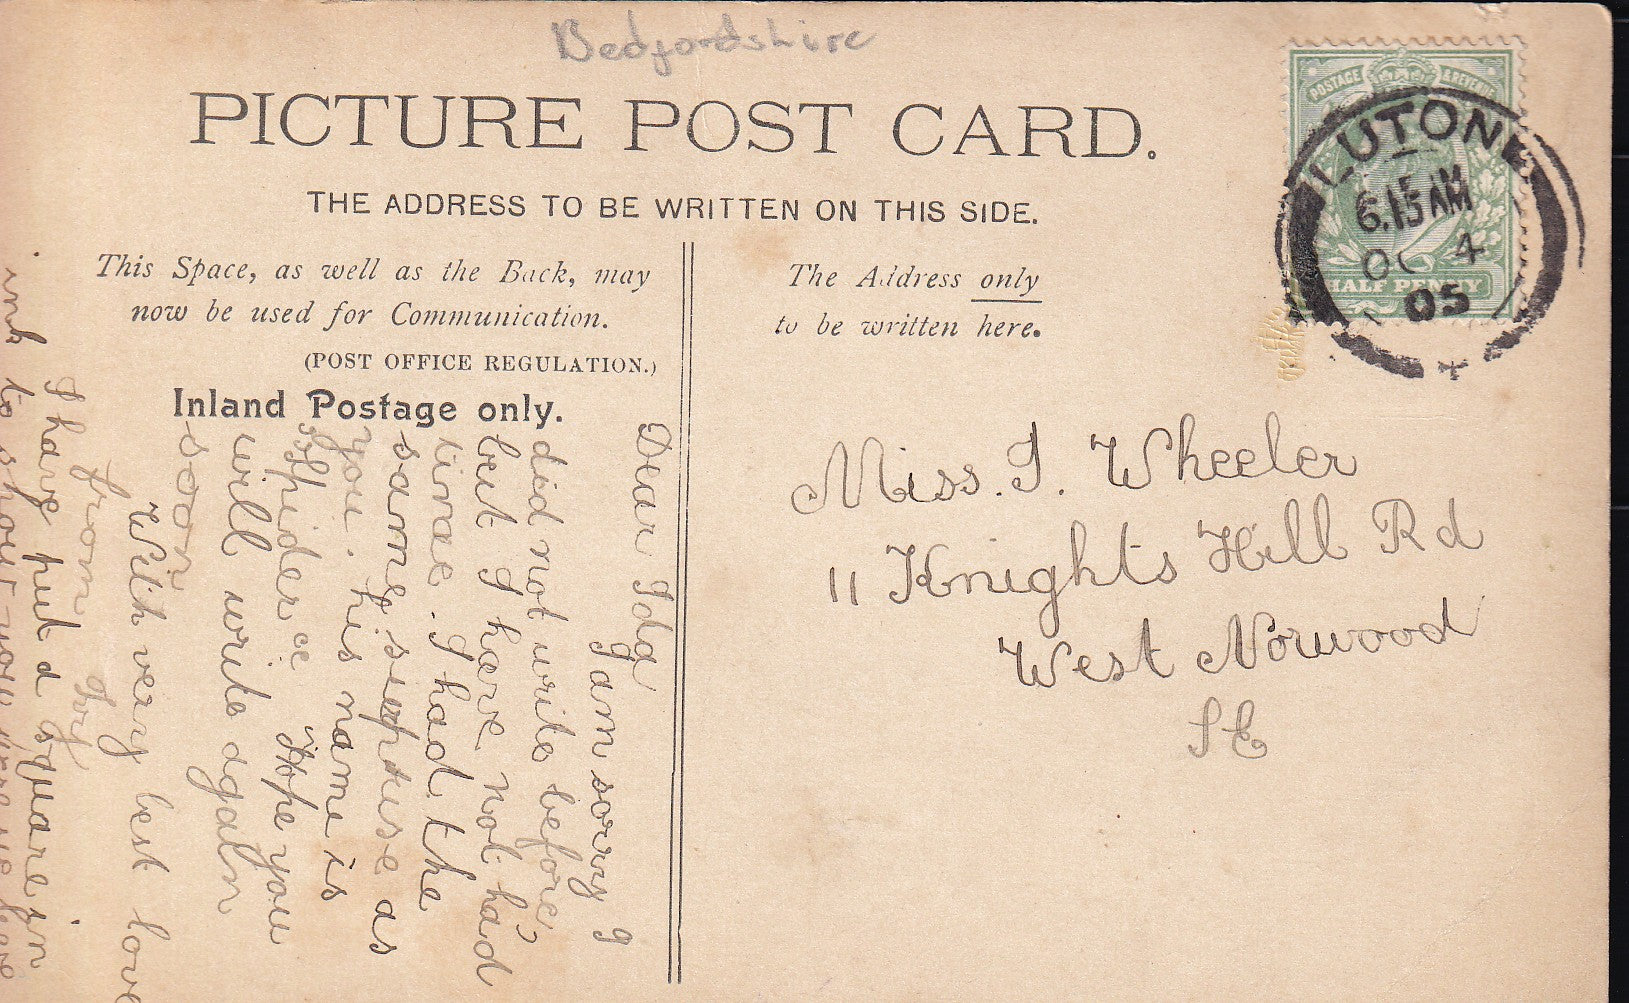 Bedfordshire
PICTURE POST CARD.
THE ADDRESS TO BE WRITTEN ON THIS SIDE.
This Space, as well as the Back, may
now be used for Communication.
(POST OFFICE REGULATION.)
Inland Postage only.
The Address only
to be written here.
POSTAGE & REVENUE
HALF PENNY
LUTON
6.15 AM
OC 4
05
Miss. I. Wheeler
11 Knights Hill Rd
West Norwood
S E
Dear Ida
I am sorry I
did not write before
but I have not had
time. I had the
same surprise as
you. his name is
Hope you
will write again
soon
With very best love
from
I have put a square in
ink to show